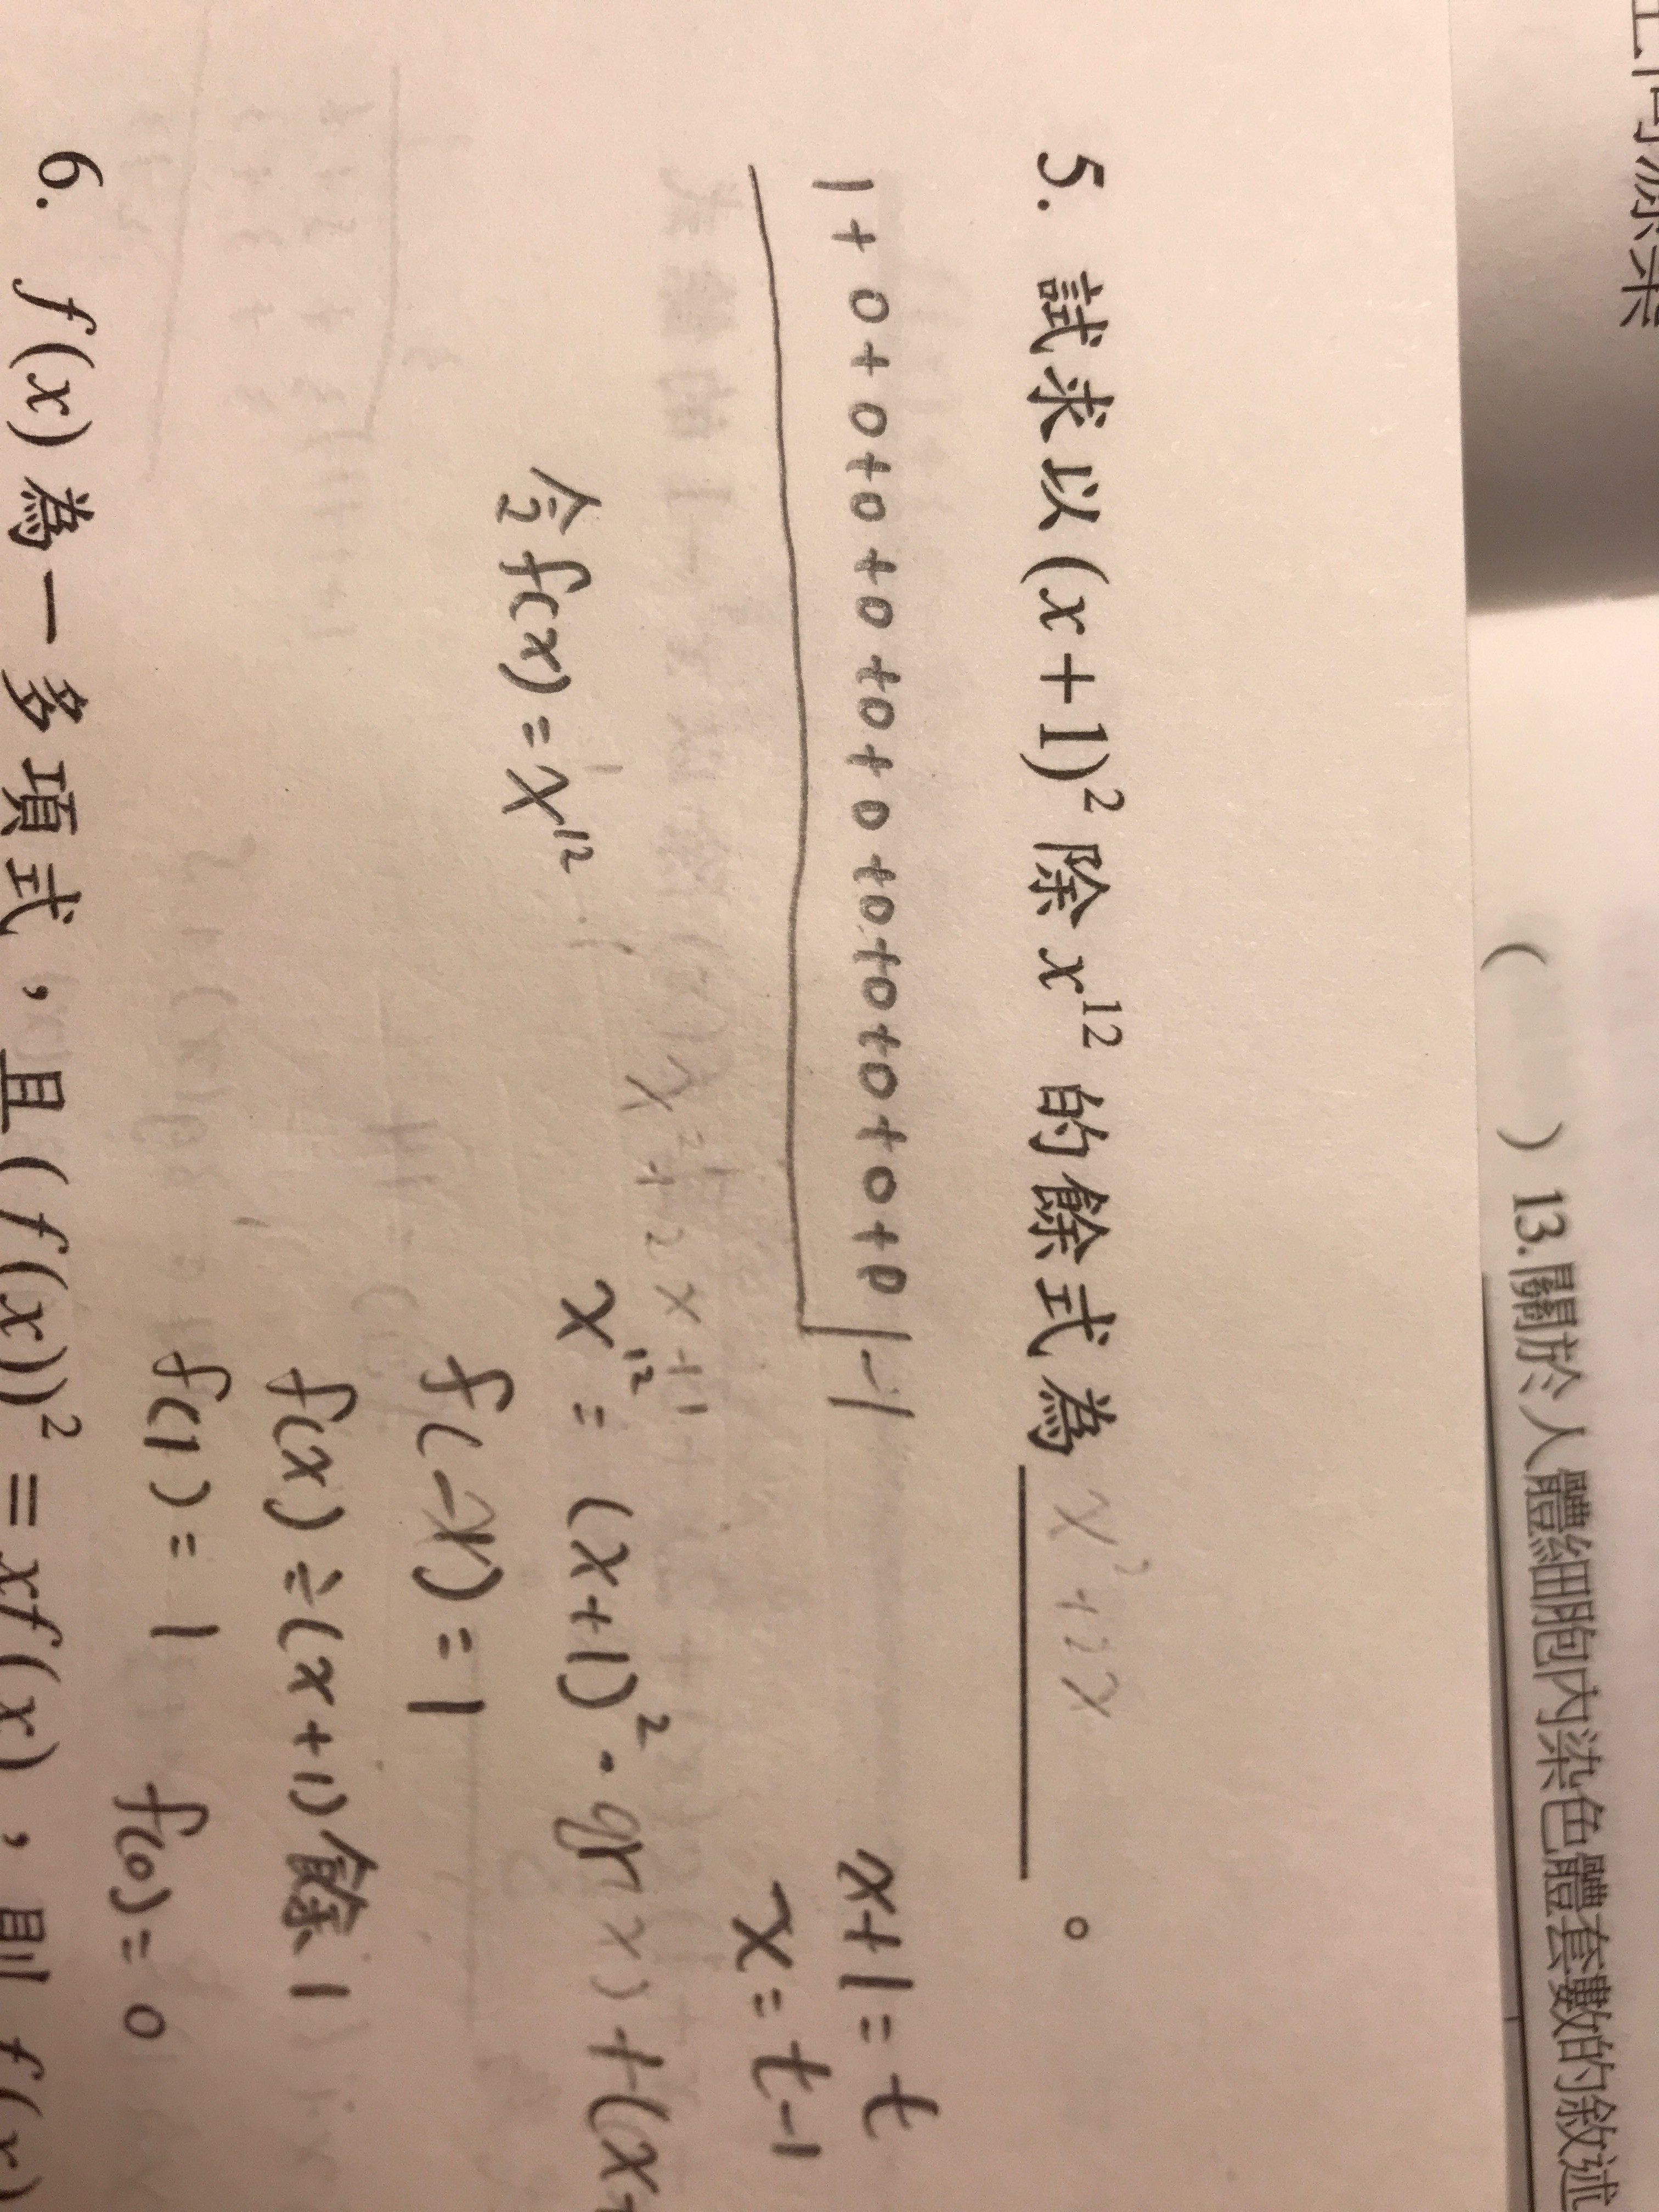 ( ) 13.關於人體細胞內染色體套數的敘述
5. 試求以(x+1)²除x¹²的餘式為 x²+2x 。
1+0+0+0+0+0+0+0+0+0+0+0+0 |-1
x+1=t
x=t-1
x²+2x+1
令f(x)=x¹²
x¹²=(x+1)²·q(x)+(x
f(-x)=1
f(x)÷(x+1)餘1
f(1)=1 f(0)=0
6. f(x)為一多項式，且(f(x))²=xf(x)，則f(x)